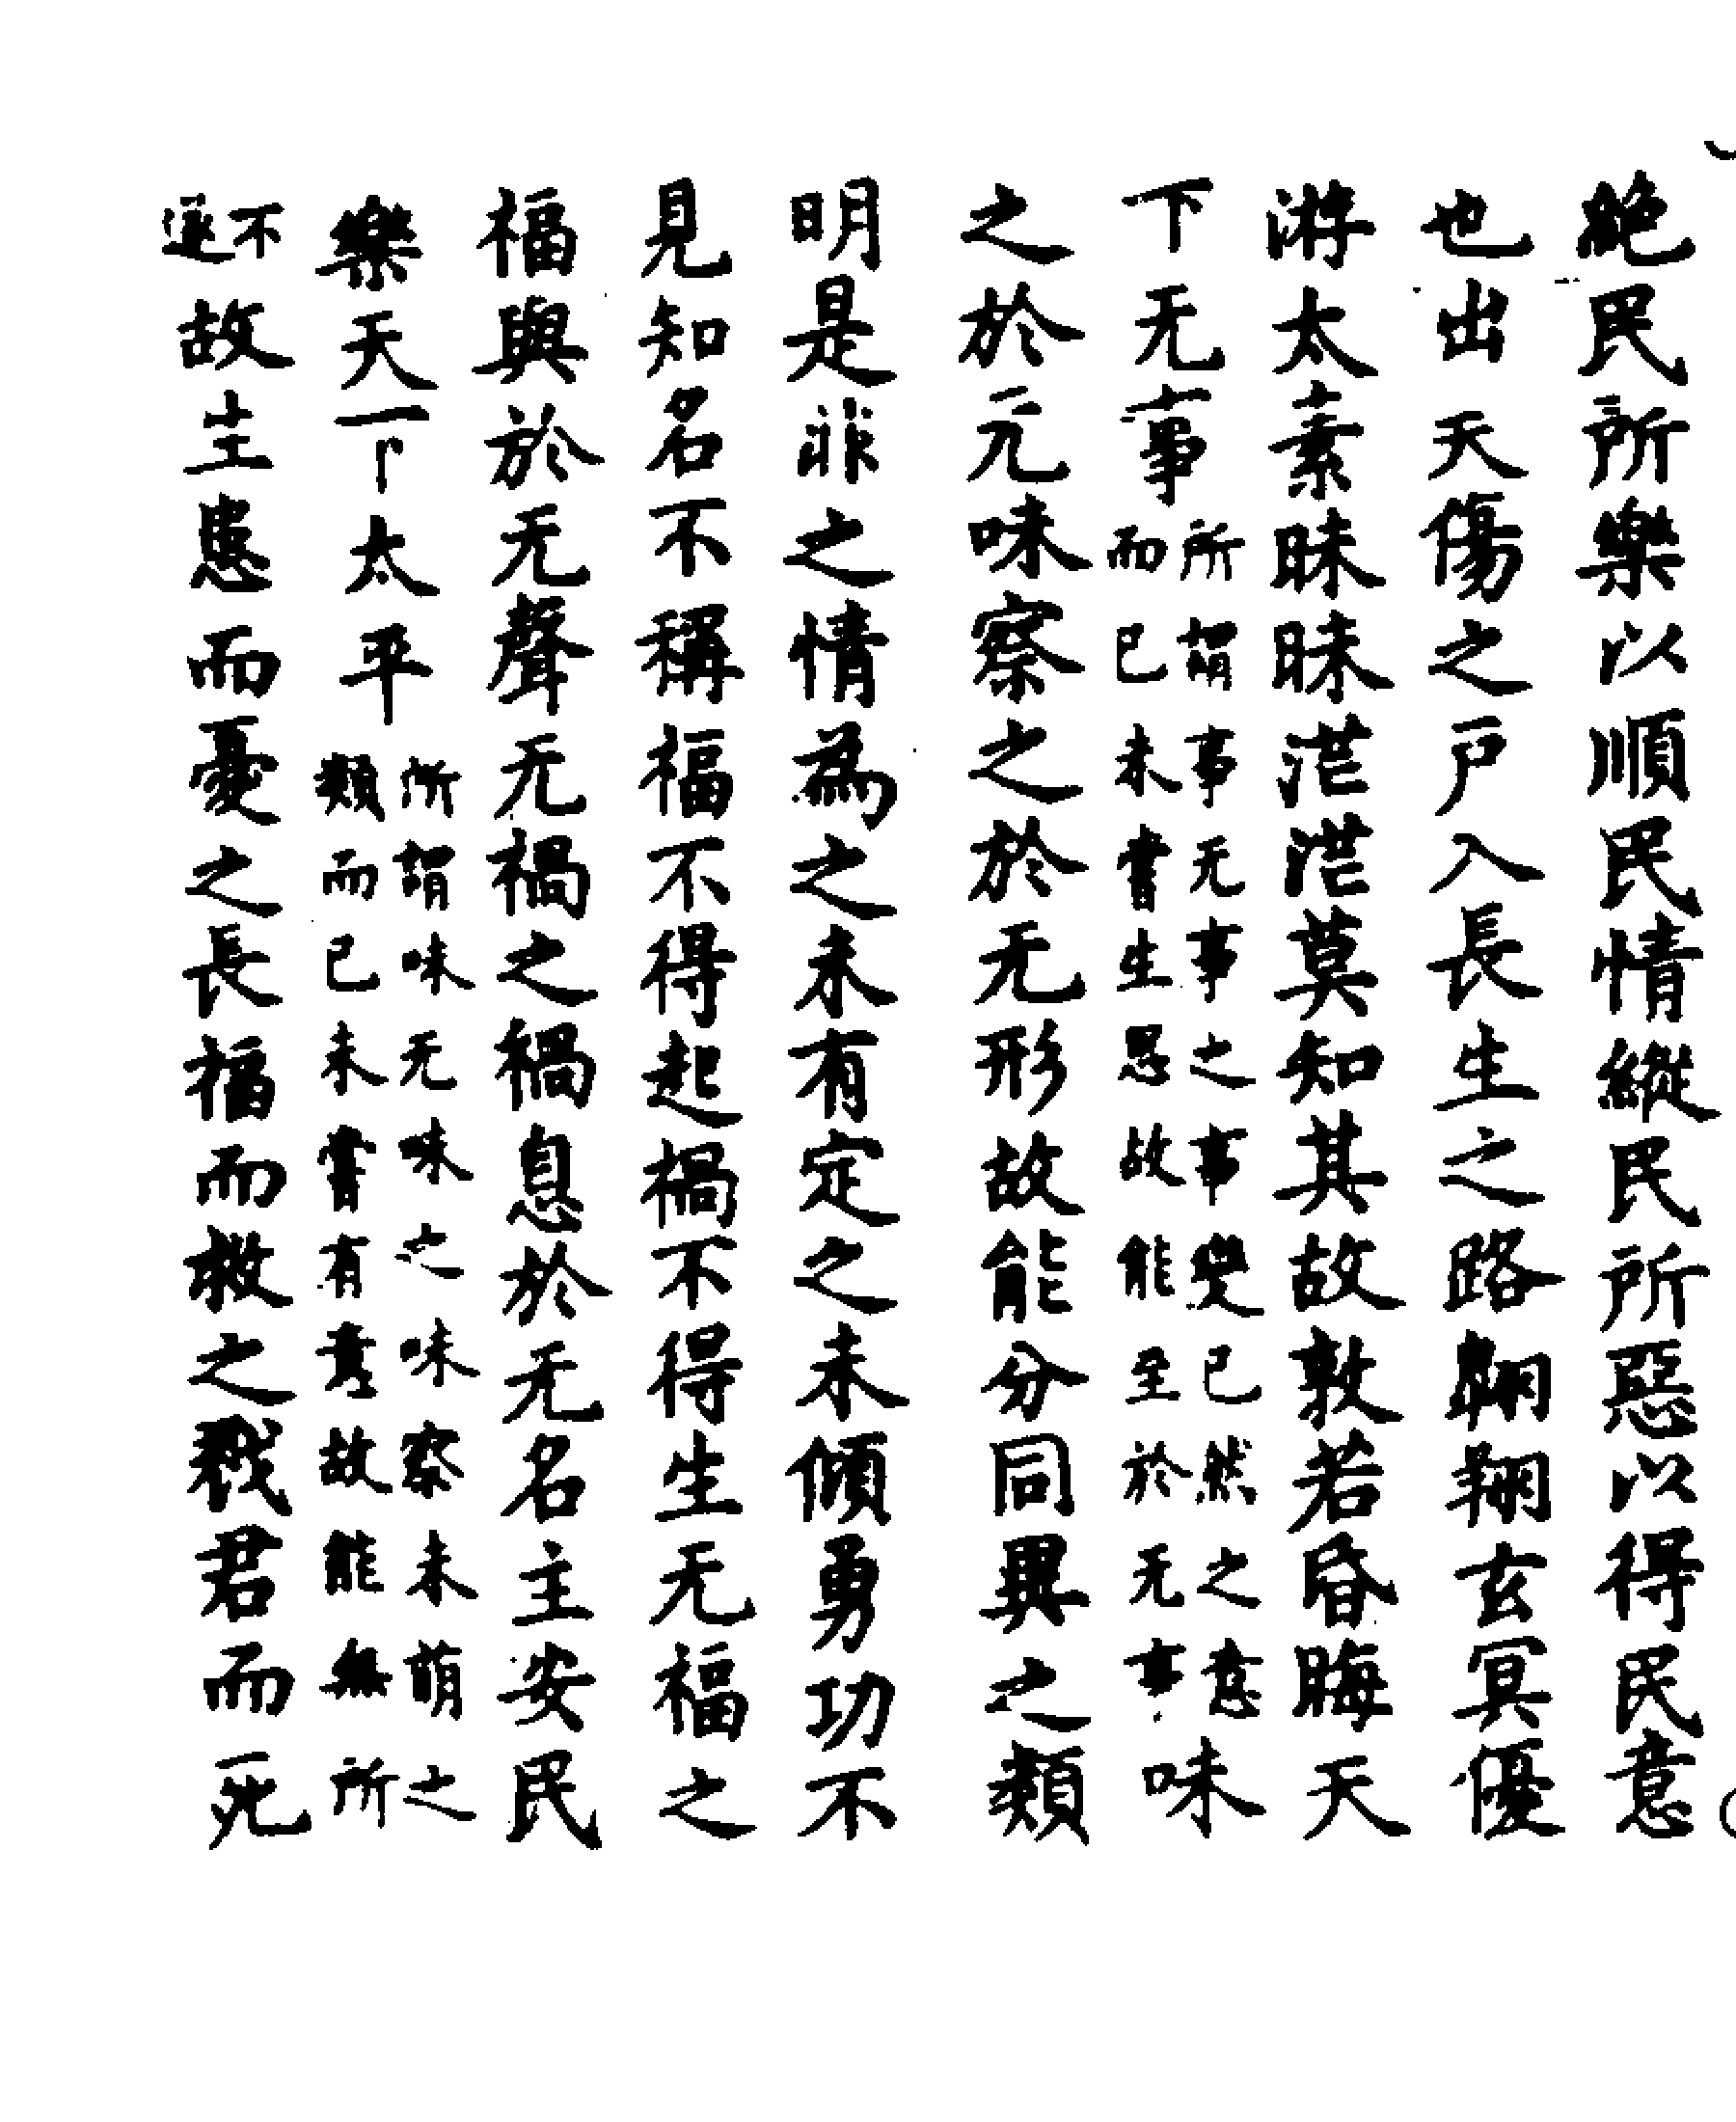 絕民所樂以順民情縱民所惡以得民意
也出天傷之戶入長生之路翱翔玄冥優
游太素昧昧茫茫莫知其故敦若昏晦天
下无事所謂事无事之事變已然之意而已未嘗生思故能至於无事味
之於元味察之於无形故能分同異之類
明是非之情為之未有定之未傾勇功不
見知名不稱福不得起禍不得生无福之
福與於无聲无禍之禍息於无名主安民
樂天下太平所謂味无味之味察未萌之類而已未嘗有意故能無所
不故生患而憂之長福而救之戮君而死